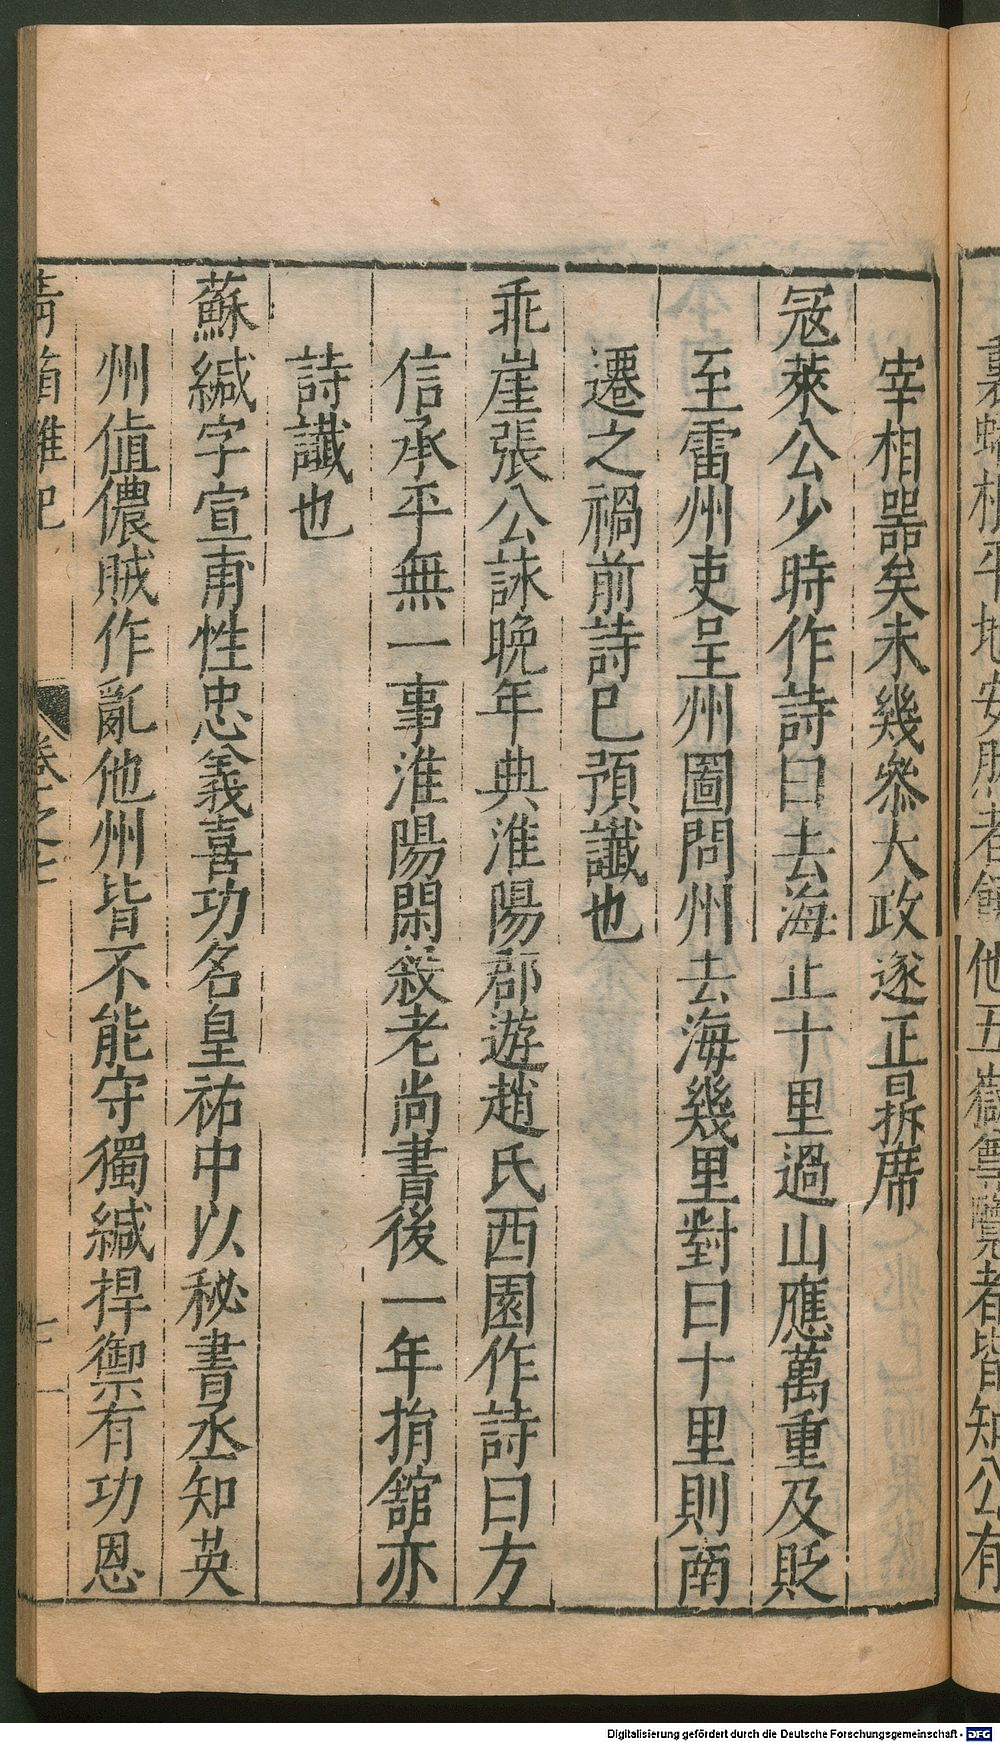 宰相噐矣未幾叅大政遂正昜拆席
冦萊公少時作詩曰去海止十里過山應萬重及貶
至雷州吏呈州圖問州去海幾里對曰十里則南
遷之禍前詩已預讖也
乖崖張公詠晩年典淮陽郡遊趙氏西園作詩曰方
信承平無一事淮陽閑殺老尚書後一年捐舘亦
詩讖也
蘇緘字宣甫性忠義喜功名皇祐中以秘書丞知英
州值儂賊作亂他州皆不能守獨緘捍禦有功恩
青箱雜記
卷之七
七
平地安
者
他五嶽尊覽者皆知公有
Digitalisierung gefördert durch die Deutsche Forschungsgemeinschaft - DFG